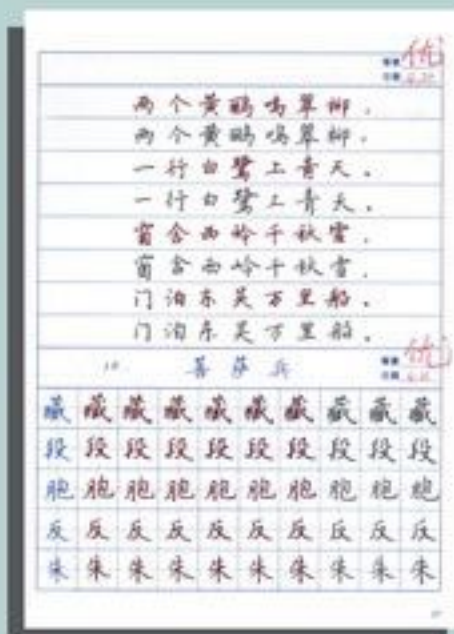 优
两个黄鹂鸣翠柳，
两个黄鹂鸣翠柳，
一行白鹭上青天。
一行白鹭上青天。
窗含西岭千秋雪，
窗含西岭千秋雪，
门泊东吴万里船。
门泊东吴万里船。
优
菩萨兵
藏藏藏藏藏藏藏藏藏藏
段段段段段段段段段段
胞胞胞胞胞胞胞胞胞胞
反反反反反反反反反反
朱朱朱朱朱朱朱朱朱朱